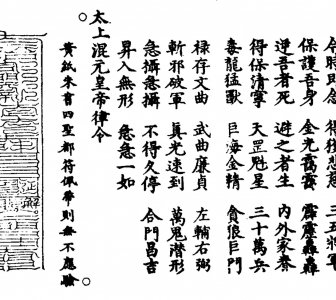 得獲慈悲 三五將軍
保護吾身 金光靄靄 霹靂轟轟
逆吾者死 避之者生 內外家眷
得保清寧 天罡魁星 三十萬兵
毒龍猛獸 巨海金精 貪狼巨門
祿存文曲 武曲廉貞 左輔右弼
斬邪破軍 真光速到 萬鬼潛形
急攝急攝 不得久停 合門昌吉
昇入無形 急急一如
太上混元皇帝律令。
黃紙朱書四聖都符佩帶則無不應驗。